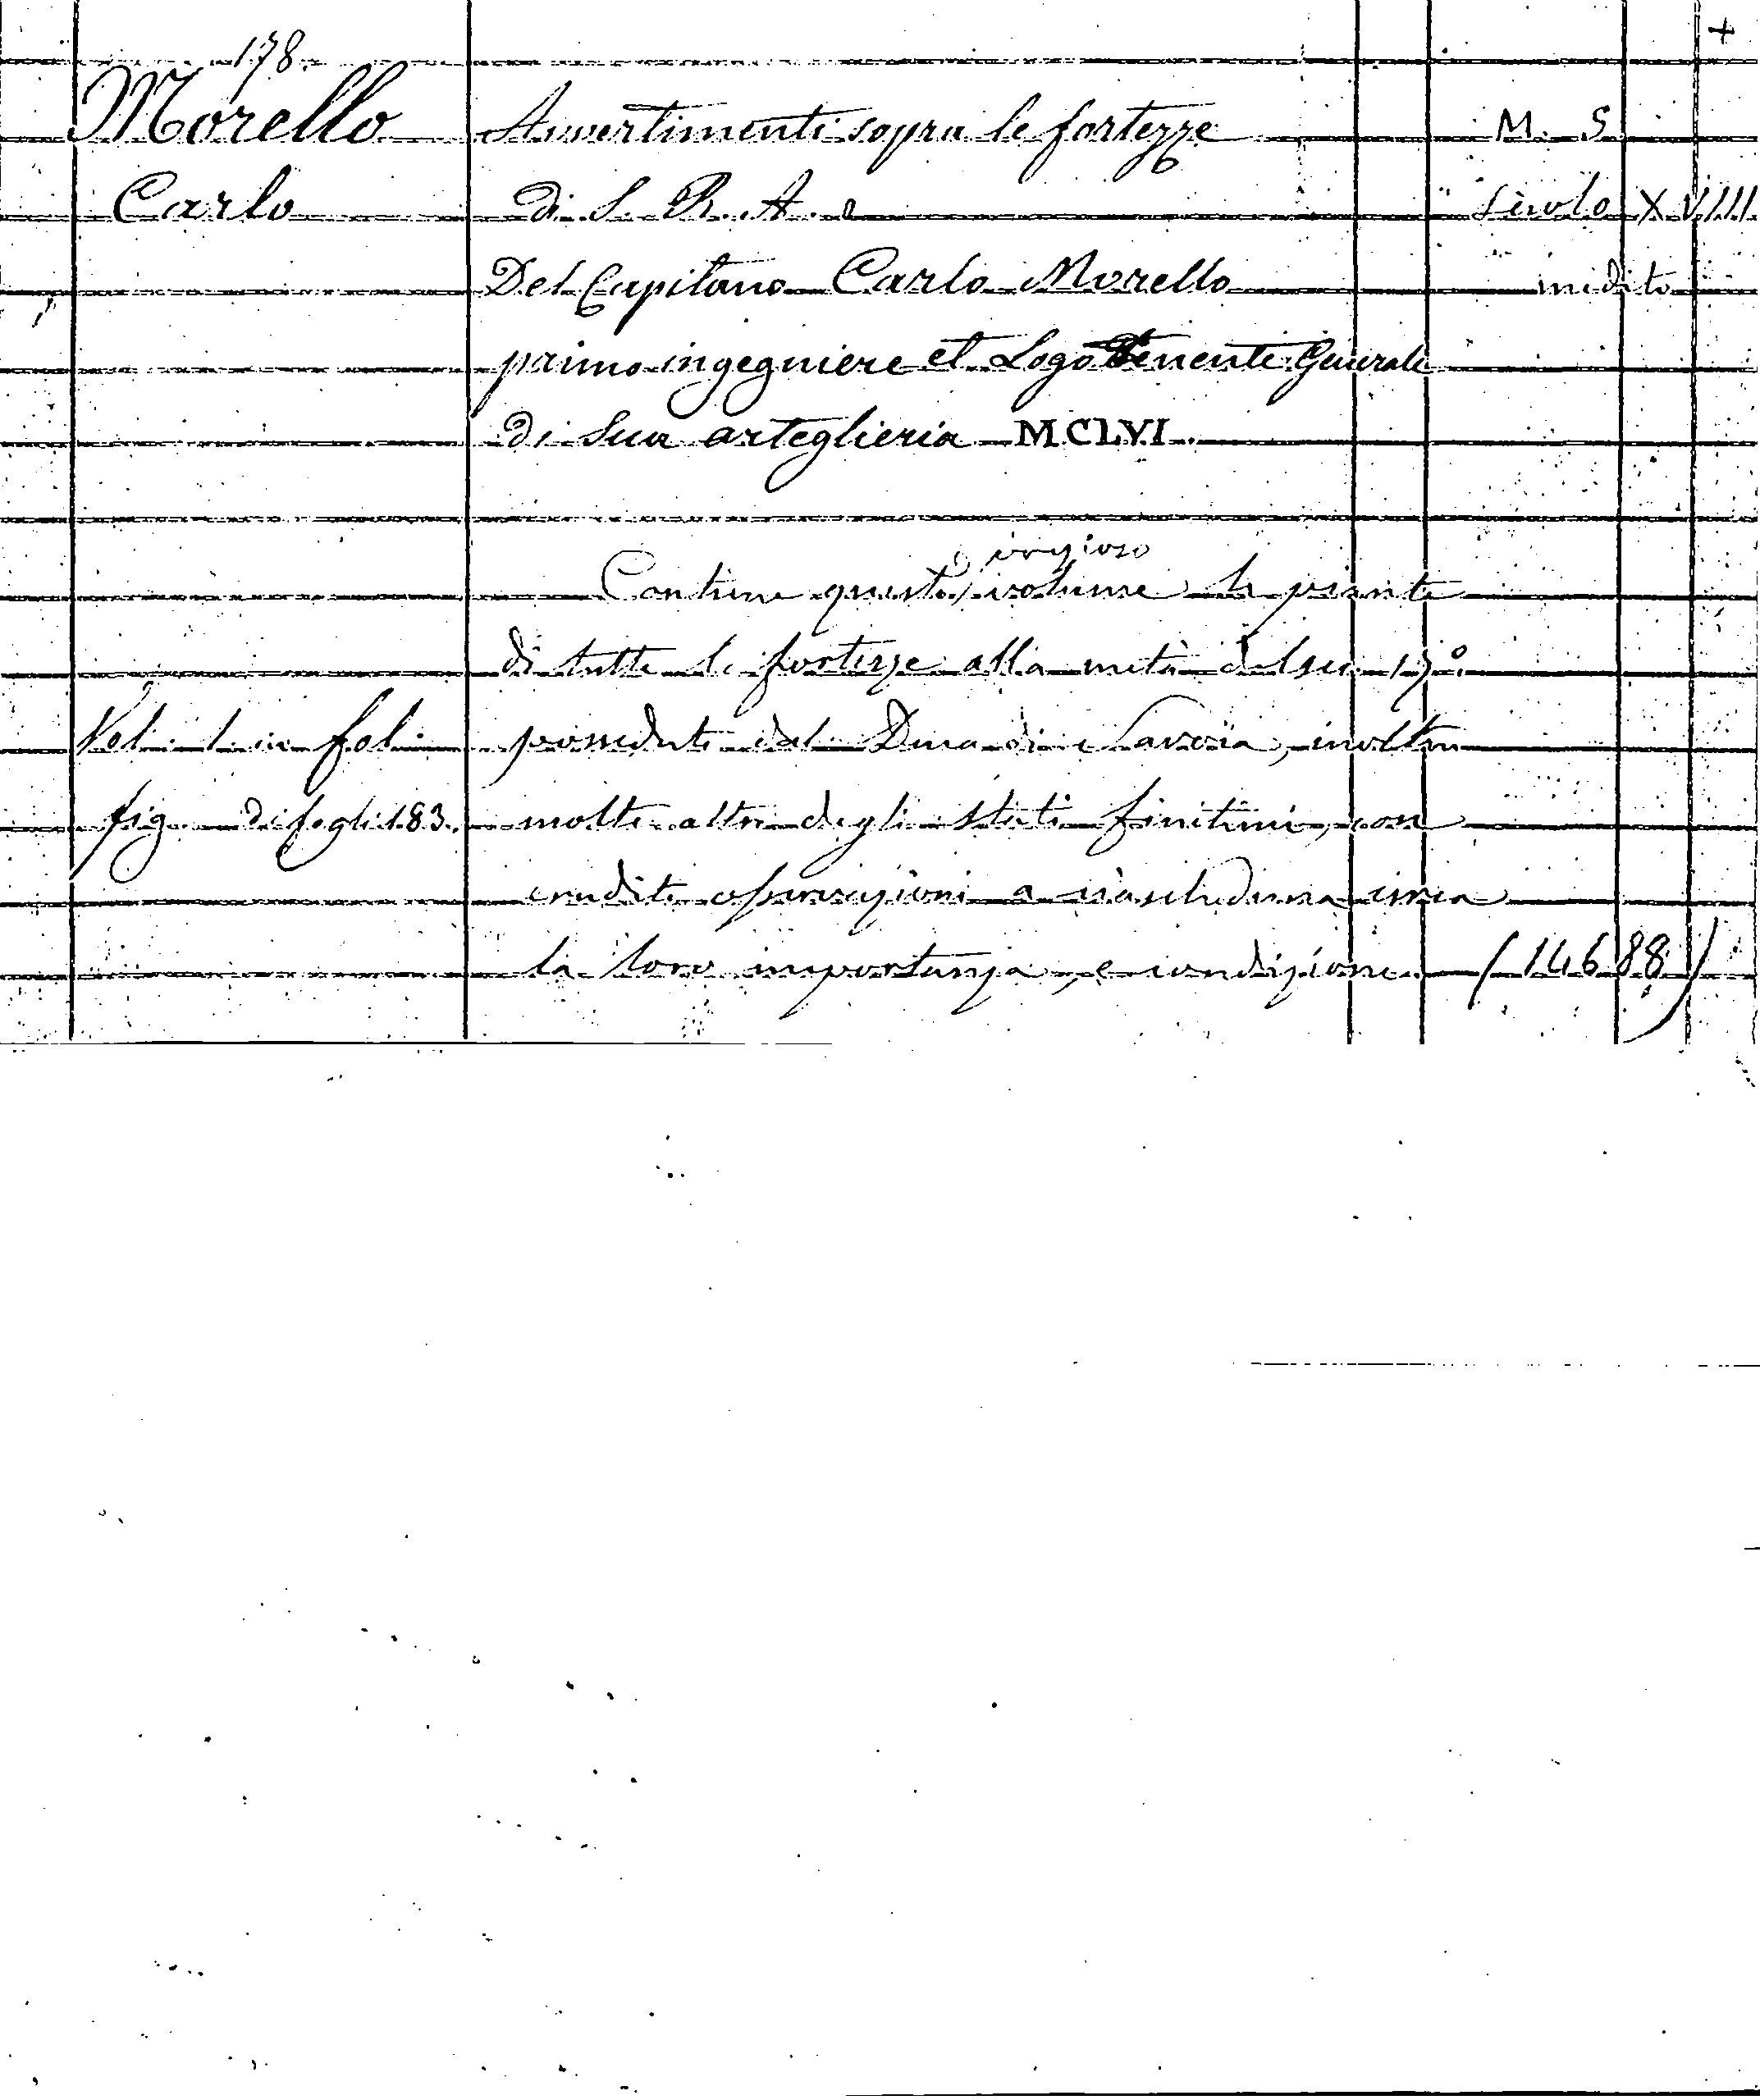 178
+
Morello Avvertimenti sopra le fortezze M. S.
Carlo di S. R. A. secolo XVIII
Del Capitano Carlo Morello inedito
primo ingegniere et Logo Tenente Generale
di sua arteglieria MCLVI.
Contiene questo volume le piante
di tutte le fortezze alla metà del sec. 17º
Vol. 1 in fol. possedute dal Duca di Savoia, inoltre
fig. di fogli 183. molte altre degli stati finitimi, con
erudite osservazioni a ciascheduna circa
la loro importanza, e condizione. (14688)